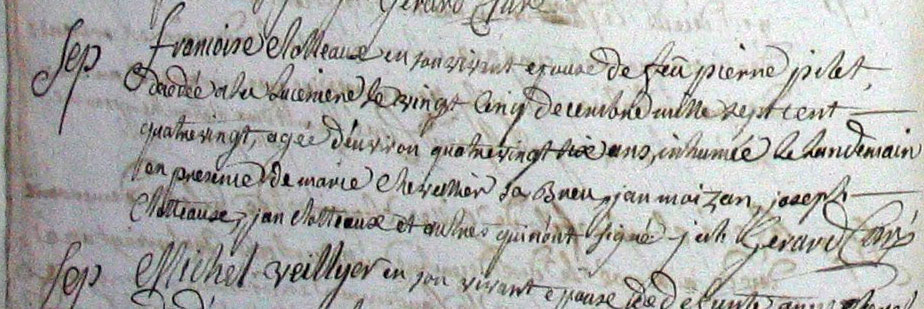 Gerard Curé
Sep francoise Clotteaux en son vivant epouse de feu pierre pilet
decedée a la Luceniere le vingt cinq decembre mille sept cent
quatre vingt, agée d'environ quatre vingt six ans, inhumée le landemain
en presence de marie chevallier sa Breu, jan moizan, joseph
Clotteaux, jan clotteaux et autres qui nont signé j. ch. Gerard Curé
Sep Michel veillyer en son vivant epoux de defunte anne